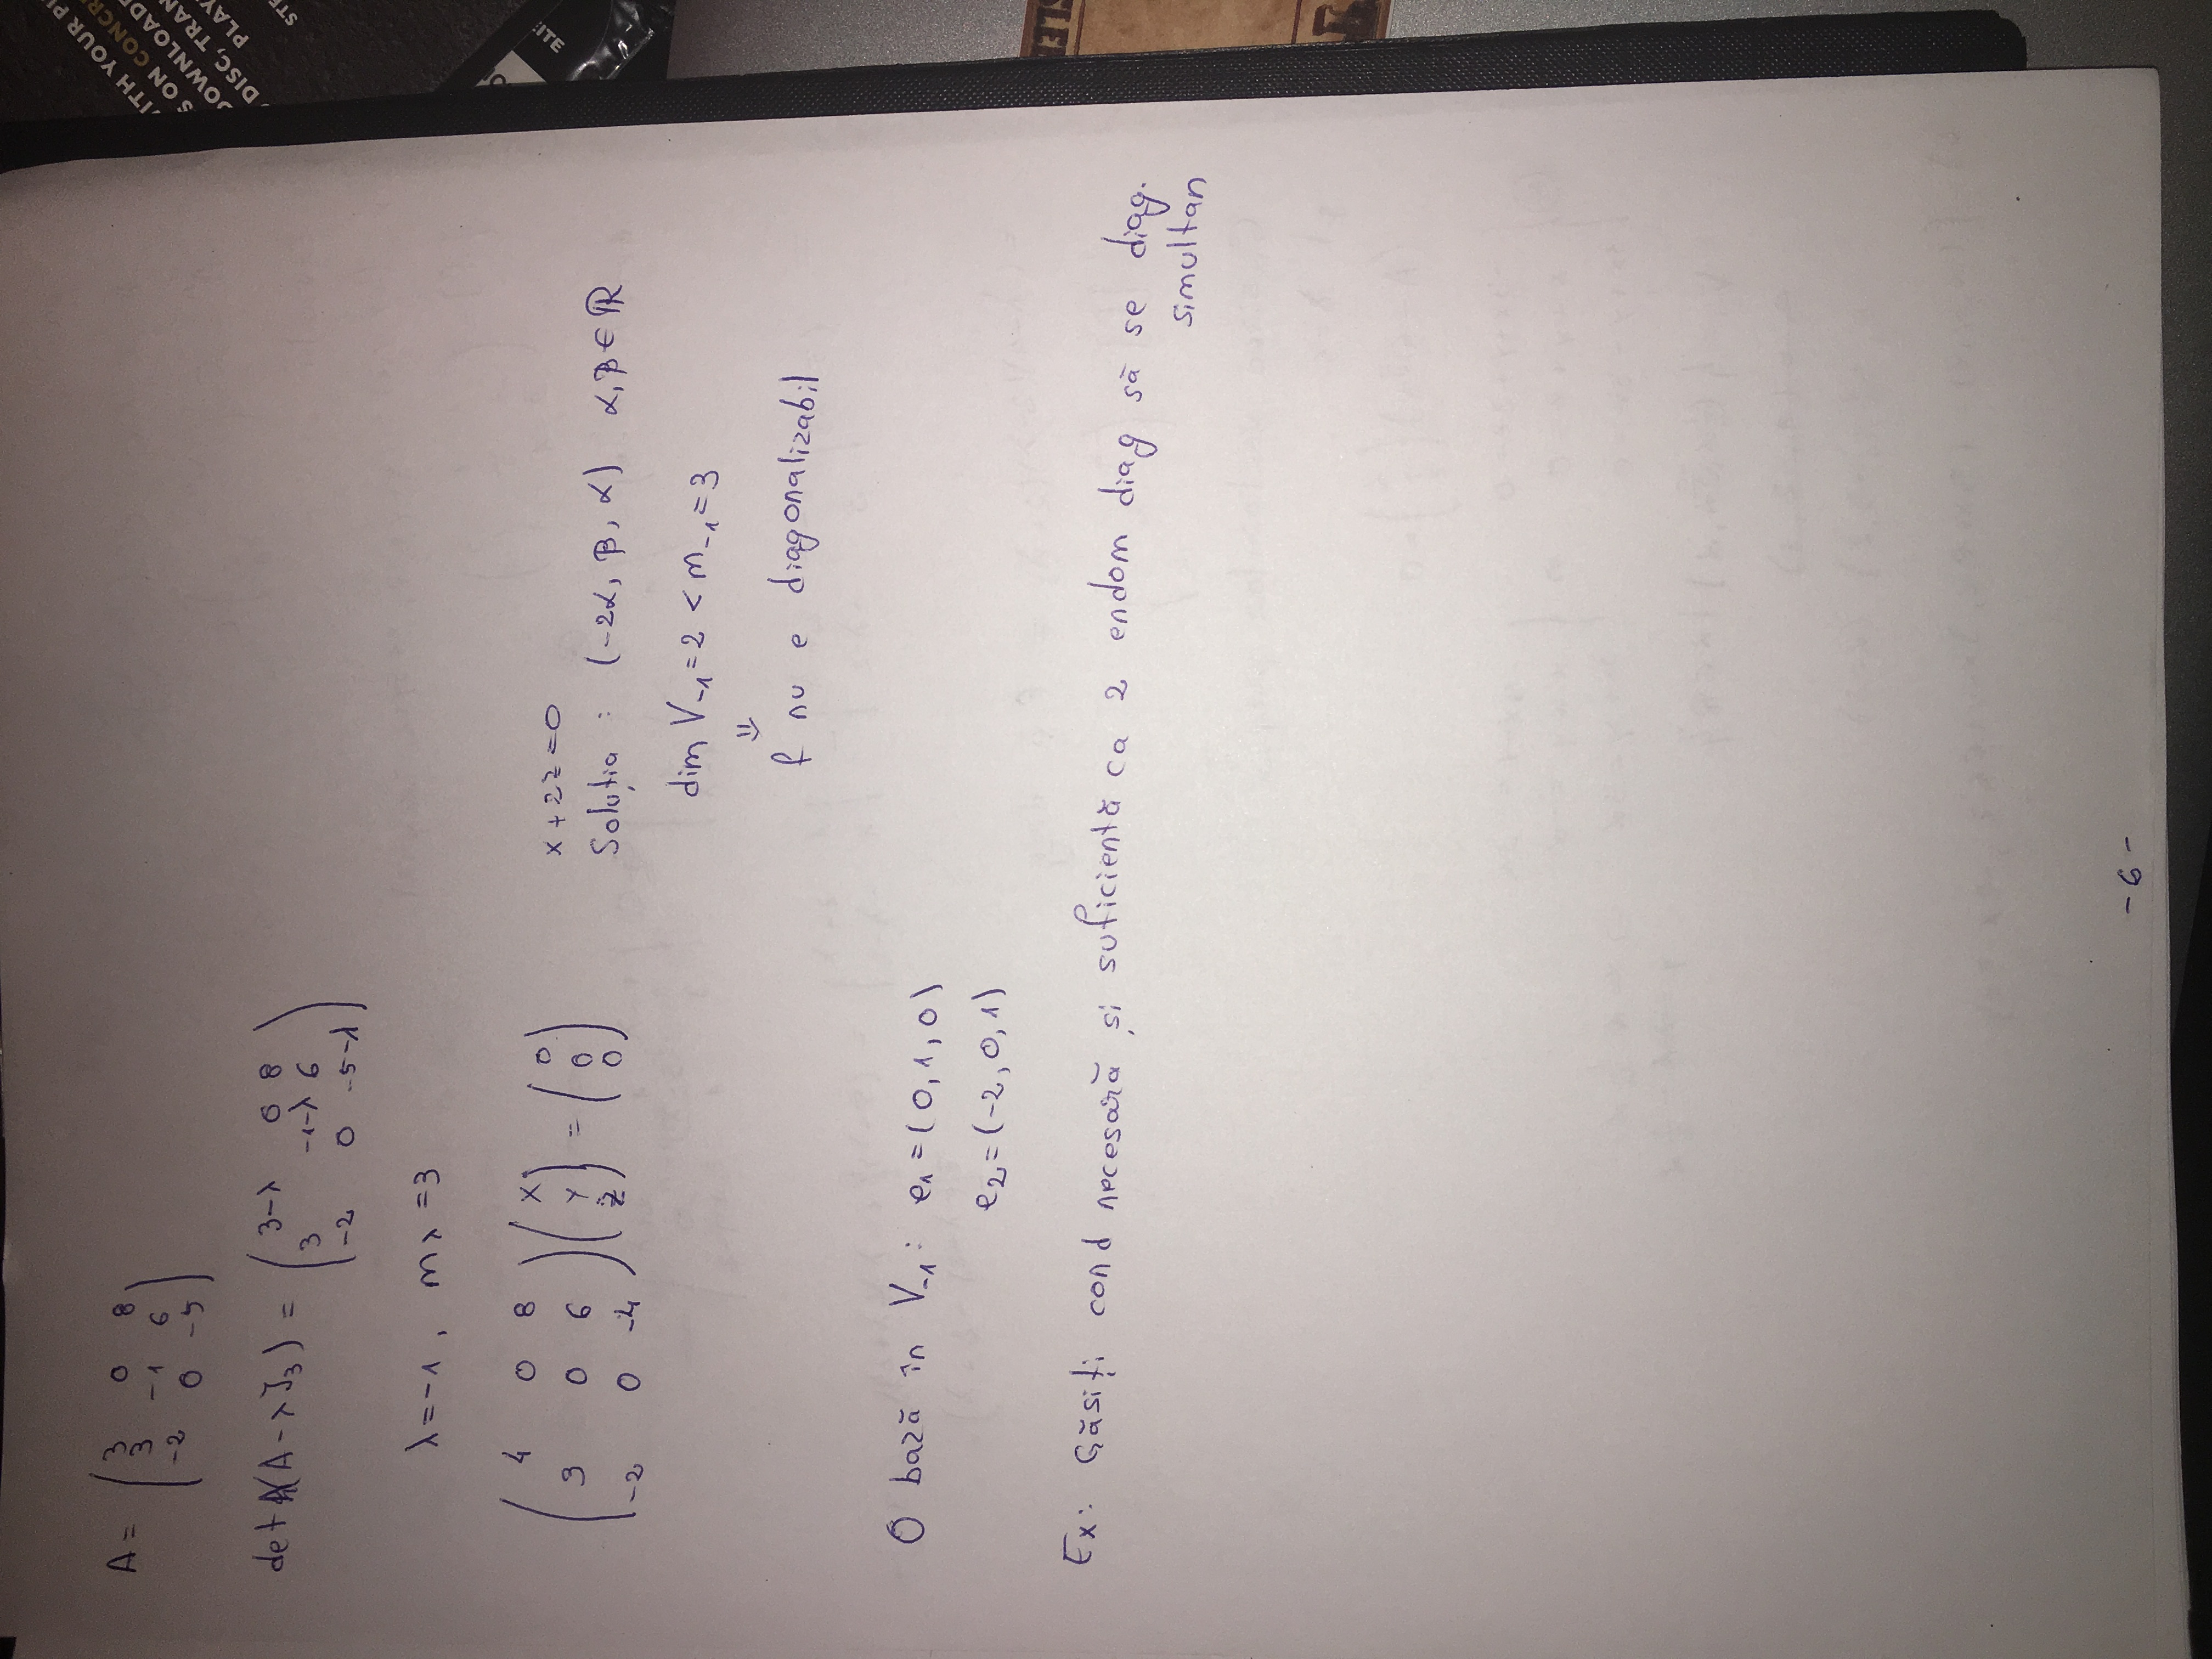 A = ( 3 0 8
3 -1 6
-2 0 -5 )
det (A - λ I₃) = ( 3-λ 0 8
3 -1-λ 6
-2 0 -5-λ )
λ = -1 , mλ = 3
( 4 0 8
3 0 6
-2 0 -4 ) ( x
y
z ) = ( 0
0
0 )
x + 2z = 0
Soluția : (-2α, β, α) α, β ∈ ℝ
dim V₋₁ = 2 < m₋₁ = 3
⇓
f nu e diagonalizabil
O bază în V₋₁ : e₁ = (0, 1, 0)
e₂ = (-2, 0, 1)
Ex: Găsiți cond necesară și suficientă ca 2 endom diag să se diag.
simultan
- 6 -
WITH YOUR
S ON CONCR
DOWNLOAD
DISC, TRAN
PLAY